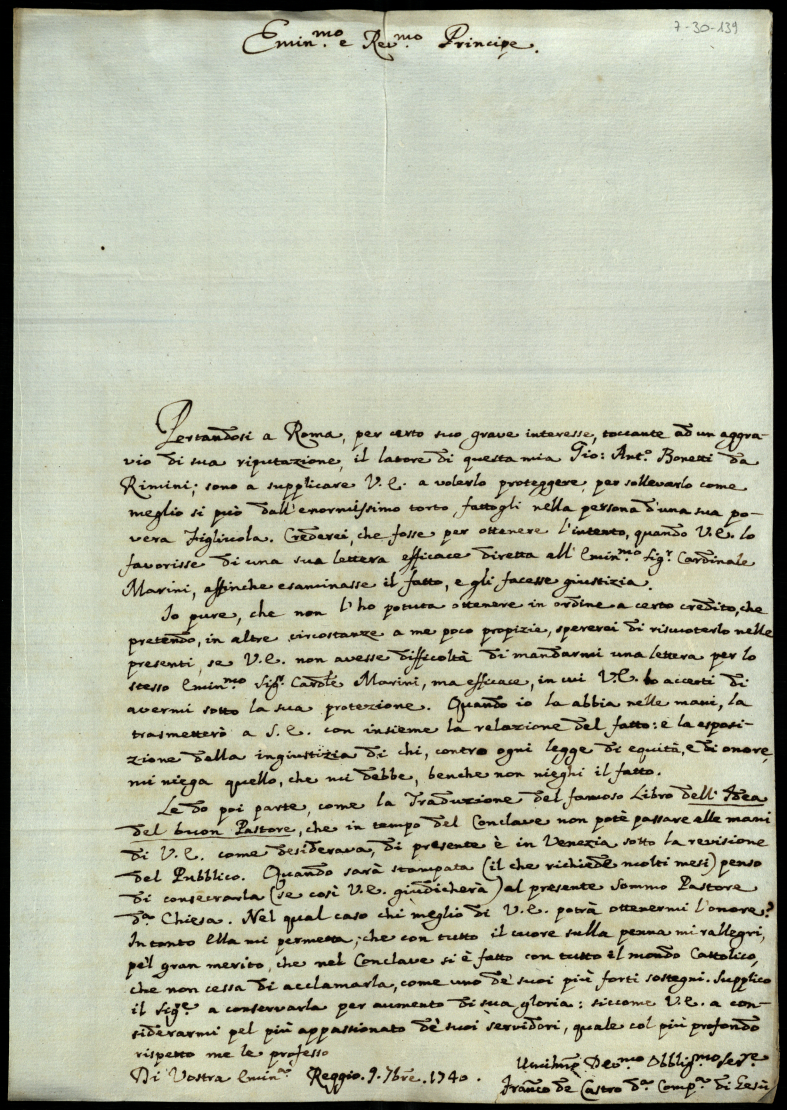 7-30-139
Emin.mo e Rev.mo Principe.
Portandosi a Roma, per certo suo grave interesse, toccante ad un aggra-
vio di sua riputazione, il latore di questa mia Gio: Ant.o Bonetti da
Rimini; sono a supplicare V.E. a volerlo proteggere, per sollevarlo come
meglio si può dall'enormissimo torto, fattogli nella persona d'una sua po-
vera Figliuola. Crederei, che fosse per ottenere l'intento, quando V.E. lo
favorisse di una sua lettera efficace diretta all'Emin.mo Sig.r Cardinale
Marini, affinche esaminasse il fatto, e gli facesse giustizia.
Io pure, che non l'ho potuta ottenere in ordine a certo credito, che
pretendo, in altre circostanze a me poco propizie, spererei di riscuoterlo nelle
presenti, se V.E. non avesse difficoltà di mandarmi una lettera per lo
stesso Emin.mo Sig.r Cardle Marini, ma efficace, in cui V.E. lo accerti di
avermi sotto la sua protezione. Quando io la abbia nelle mani, la
trasmetterò a S.E. con insieme la relazione del fatto: e la esposi-
zione della ingiustizia di chi, contro ogni legge di equità, e di onore,
mi niega quello, che mi debbe, benche non nieghi il fatto.
Le do poi parte, come la Traduzione del famoso Libro dell'Idea
del buon Pastore, che in tempo del Conclave non potè passare alle mani
di V.E. come desiderava, di presente è in Venezia sotto la revisione
del Pubblico. Quando sarà stampata (il che richiede molti mesi) penso
di consecrarla (se così V.E. giudicherà) al presente Sommo Pastore
d.a Chiesa. Nel qual caso chi meglio di V.E. potrà ottenermi l'onore?
Intanto Ella mi permetta, che con tutto il cuore sulla penna mi rallegri,
pel gran merito, che nel Conclave si è fatto con tutto il mondo Cattolico,
che non cessa di acclamarla, come uno de' suoi più forti sostegni. Supplico
il Sig.e a conservarla per aumento di sua gloria: siccome V.E. a con-
siderarmi pel più appassionato de' suoi servidori, quale col più profondo
rispetto me le professo
Di Vostra Emin.a Reggio. 9. 7bre. 1740.
Umilmo Dev.mo Obblig.mo Ser.re
Franco de Castro d.a Comp.a di Gesù